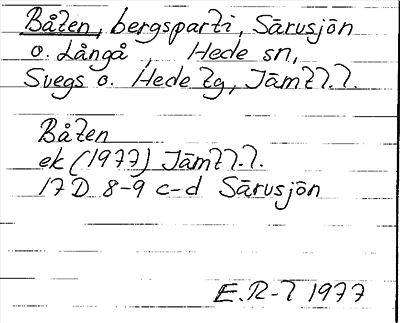 Båten, bergsparti, Särusjön
o. Långå, Hede sn,
Svegs o. Hede tg, Jämtl.l.
Båten
ek (1977) Jämtl.l.
17D 8-9 c-d Särusjön
E.R-l 1977